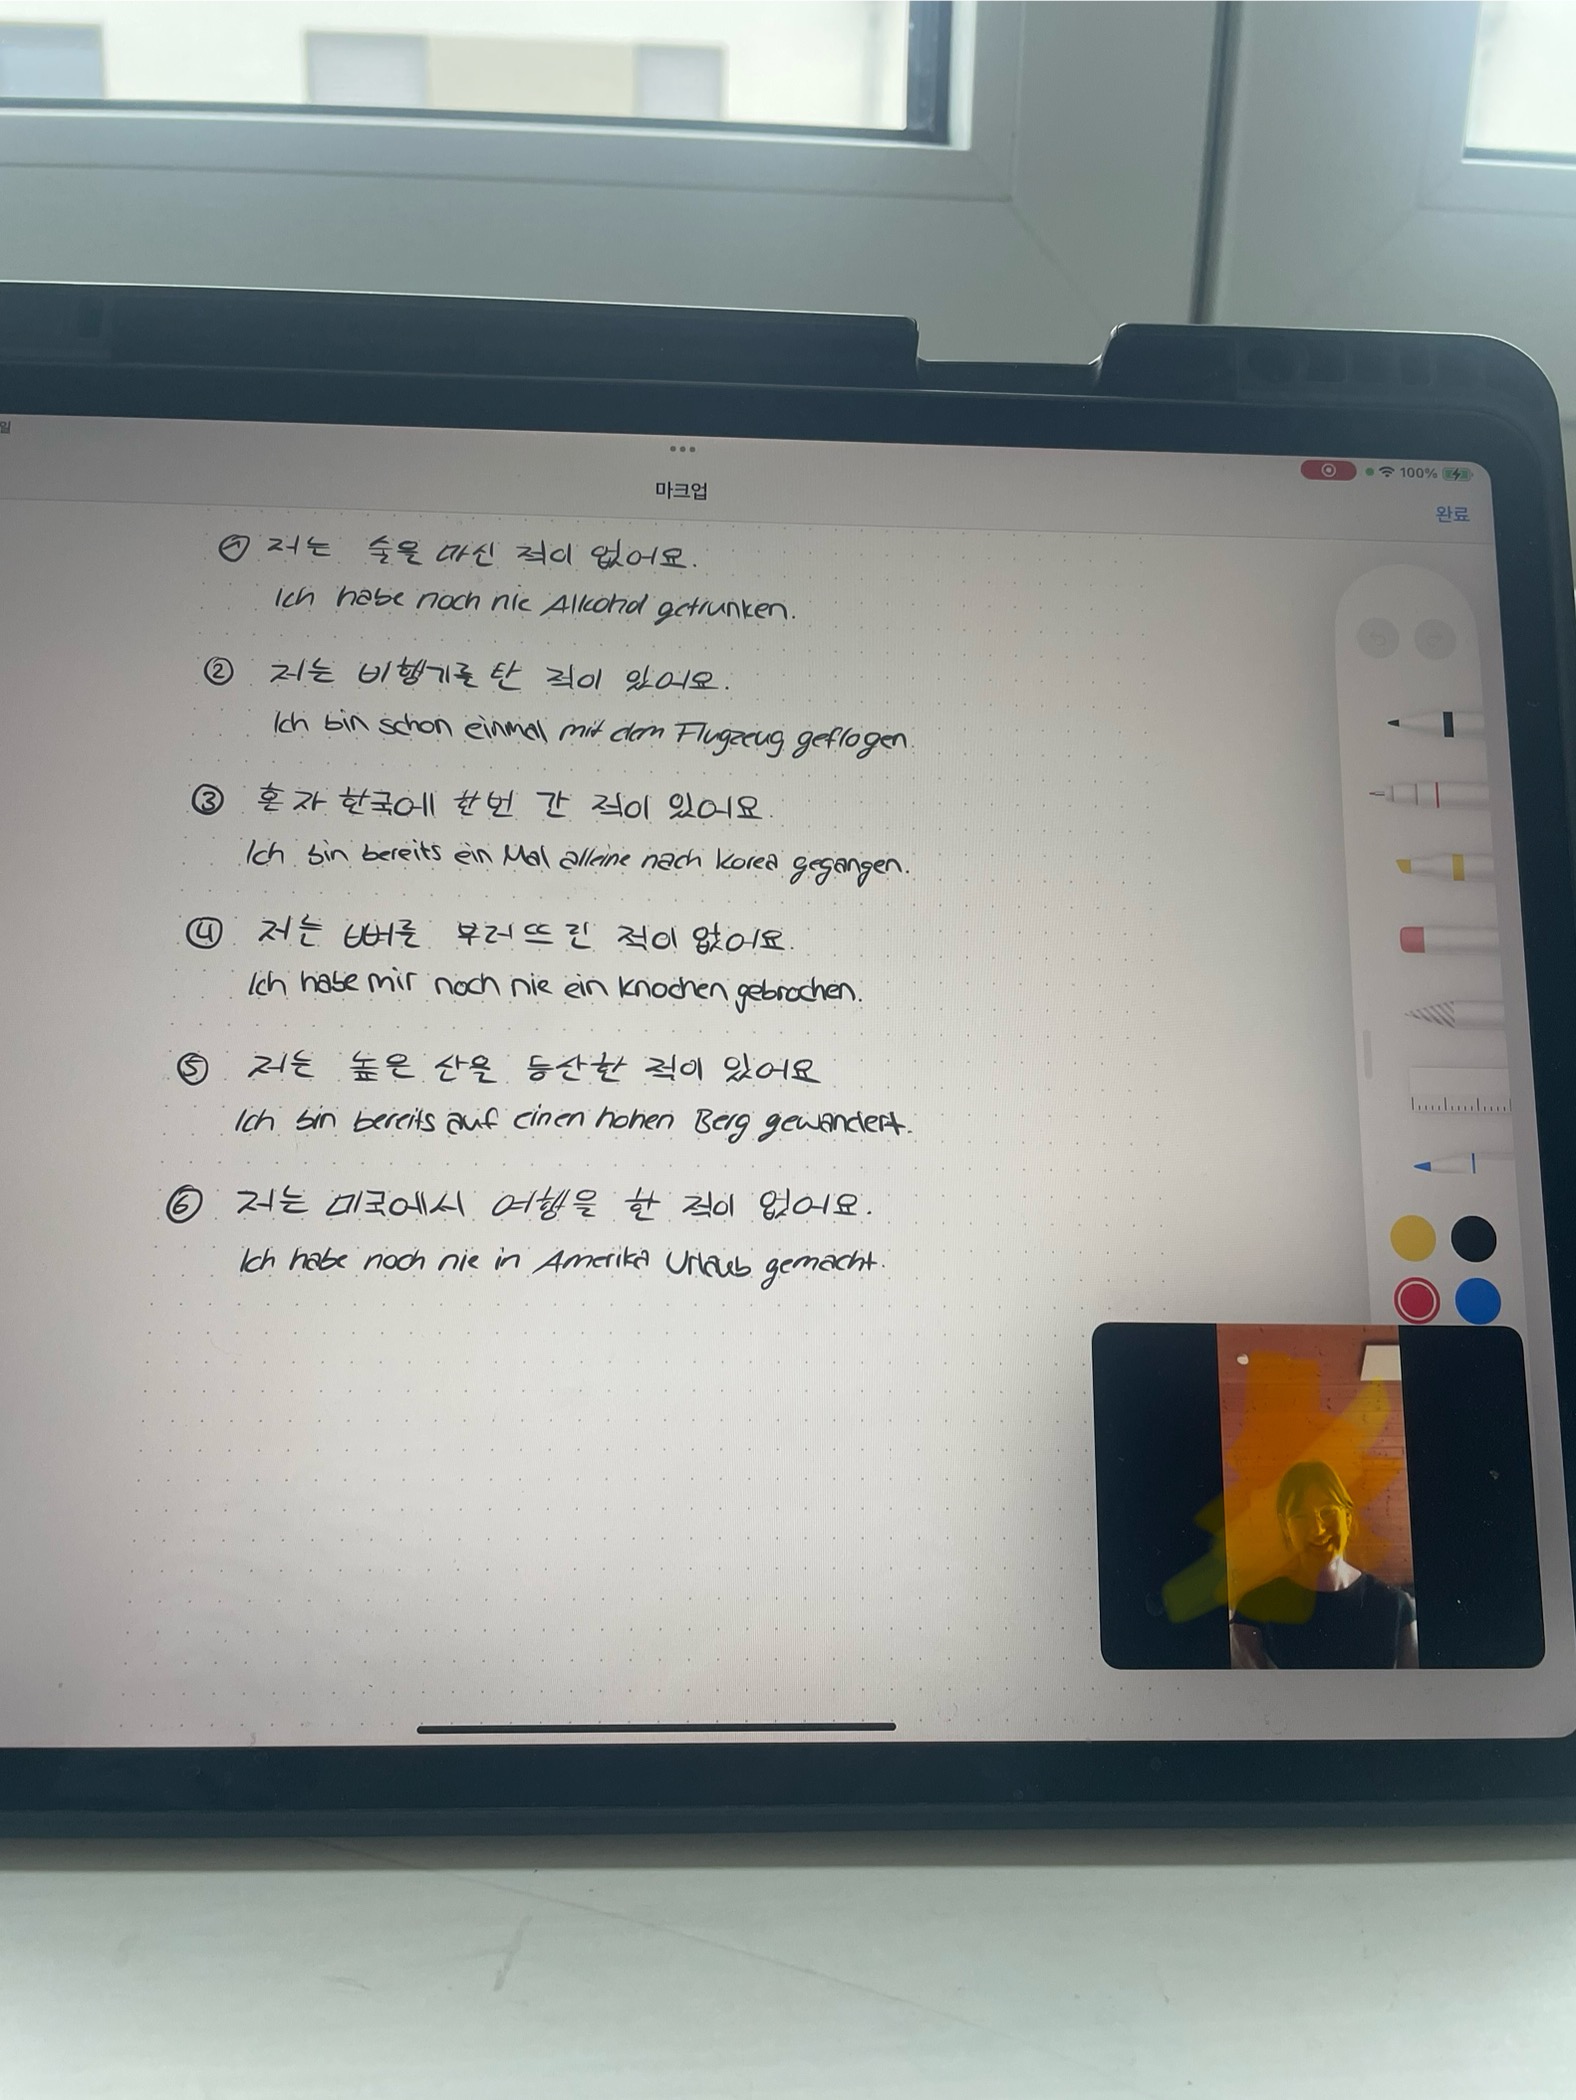 일
마크업
100%
완료
① 저는 술을 마신 적이 없어요.
Ich habe noch nie Alkohol getrunken.
② 저는 비행기를 탄 적이 있어요.
Ich bin schon einmal mit dem Flugzeug geflogen.
③ 혼자 한국에 한번 간 적이 있어요.
Ich bin bereits ein Mal alleine nach Korea gegangen.
④ 저는 뼈를 부러뜨린 적이 없어요.
Ich habe mir noch nie ein Knochen gebrochen.
⑤ 저는 높은 산을 등산한 적이 있어요
Ich bin bereits auf einen hohen Berg gewandert.
⑥ 저는 미국에서 여행을 한 적이 없어요.
Ich habe noch nie in Amerika Urlaub gemacht.